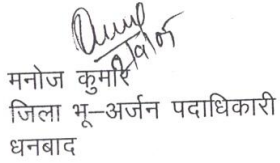 मनोज कुमार
जिला भू–अर्जन पदाधिकारी
धनबाद